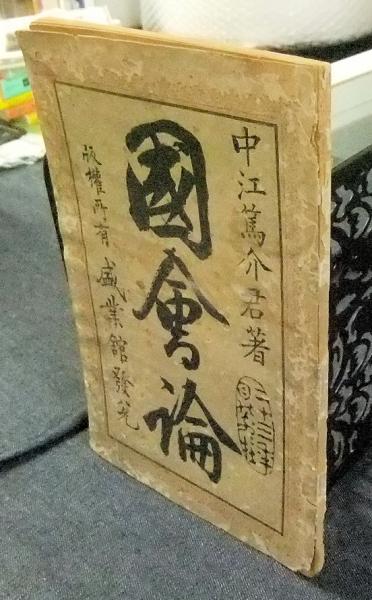 中江篤介君著
國會論
版權所有 盛業館發兌